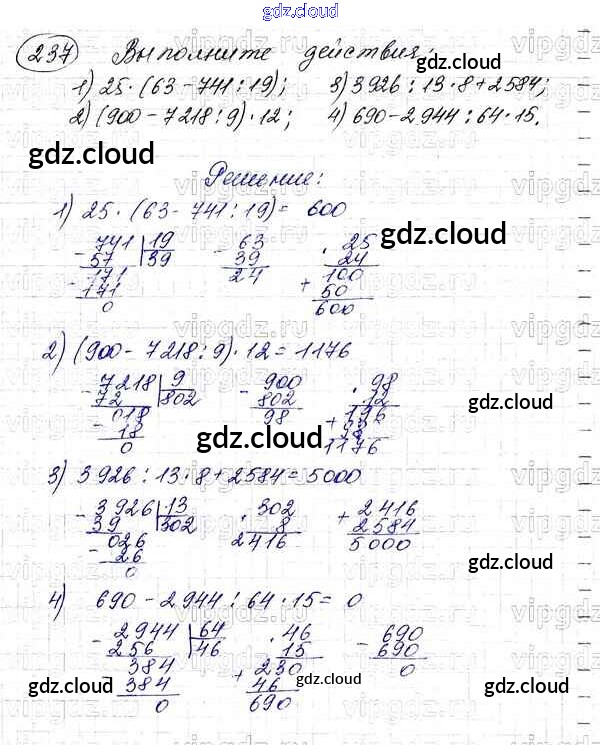 gdz.cloud
237 Выполните действия:
1) 25·(63-741:19); 3) 3926:13·8+2584;
2) (900-7218:9)·12; 4) 690-2944:64·15.
gdz.cloud
Решение:
1) 25·(63-741:19)= 600
gdz.cloud
-741 |19 -63 ·25
57 |39 39 24
-171 24 100
171 +50
0 600
2) (900-7218:9)·12=1176
gdz.cloud
-7218 |9 -900 ·98
72 |802 802 12
018 98 196
-18 +98
0 1176
gdz.cloud
gdz.cloud
3) 3926:13·8+2584=5000
-3926 |13 ·302 +2416
39 |302 8 2584
026 2416 5000
-26
0
gdz.cloud
4) 690-2944:64·15= 0
-2944 |64 ·46 -690
256 |46 15 690
-384 230 0
384 +46
0 690
gdz.cloud
gdz.cloud
gdz.cloud
gdz.cloud